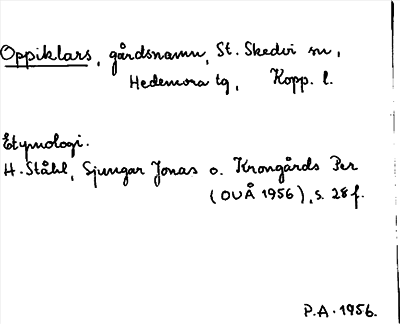 Oppiklars, gårdsnamn, St. Skedvi sn,
Hedemora tg, Kopp. l.
Etymologi.
H. Ståhl, Sjungar Jonas o. Krongårds Per
(OUÅ 1956), s. 28 f.
P.A. 1956.